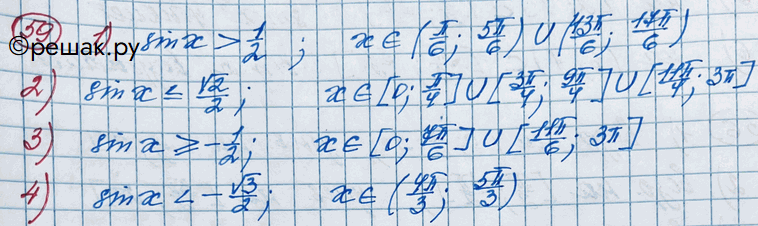 59 1) sin x > 1/2 ; x ∈ (π/6; 5π/6) ∪ (13π/6; 17π/6)
©решак.ру
2) sin x ≤ √2/2; x ∈ [0; π/4] ∪ [3π/4; 9π/4] ∪ [11π/4; 3π]
3) sin x ≥ -1/2; x ∈ [0; 7π/6] ∪ [11π/6; 3π]
4) sin x < -√3/2; x ∈ (4π/3; 5π/3)